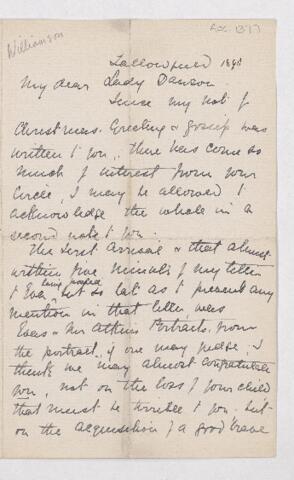 Williamson
Fallowfield 1898
My dear Lady Dawson
Since my note of
Christmas Greeting & gossip was
written to you, there has come so
much of interest from your
Circle, I may be allowed to
acknowledge the whole in a
second note to you.
The first arrival & that almost
within five minutes of my letter
being posted
to Eva, but so late as to prevent any
mention in that letter, was
Evas & Mr Atkins Portraits. From
the portrait, if one may judge, I
think we may almost congratulate
you, not on the loss of your child
that must be terrible to you. but
on the acquisition of a good brave